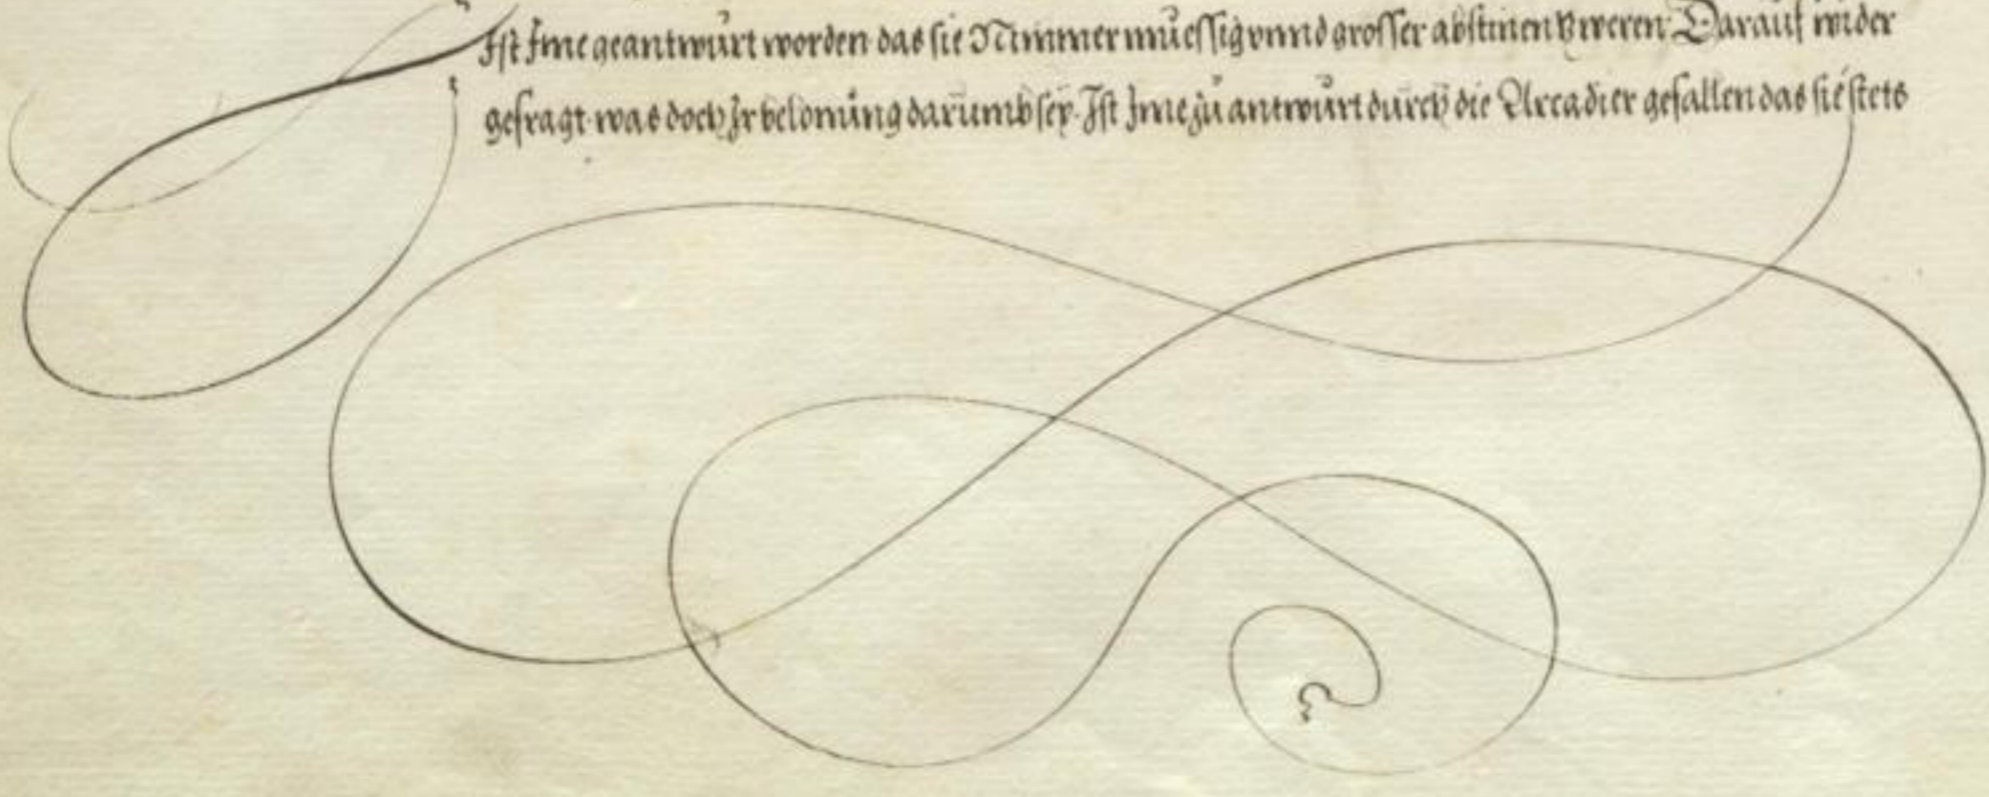 Ist Ime geantwůrt worden das sie Nimmer můessig vnnd grosser abstinentz weren. Darauf wider
gefragt was doch Ir belonůng darůmb seÿ. Ist Ime zů antwůrt důrch die Arcadier gefallen das sie stets